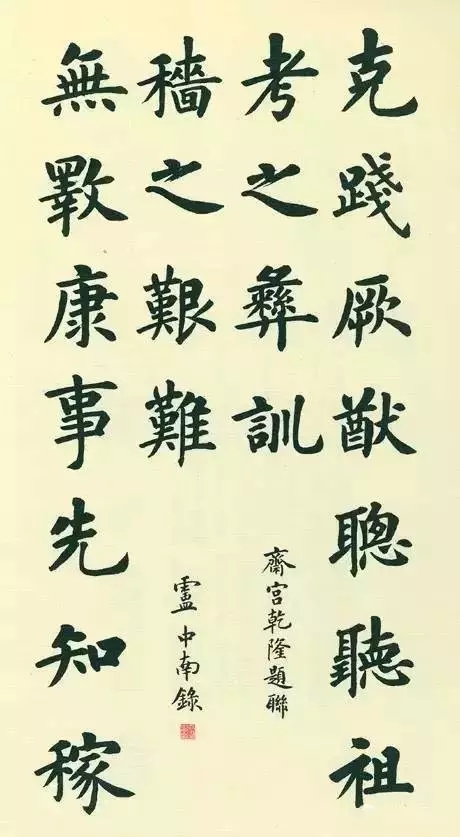 克踐厥猷聰聽祖
考之彝訓
齋宮乾隆題聯
無斁康事先知稼
穡之艱難
盧中南錄